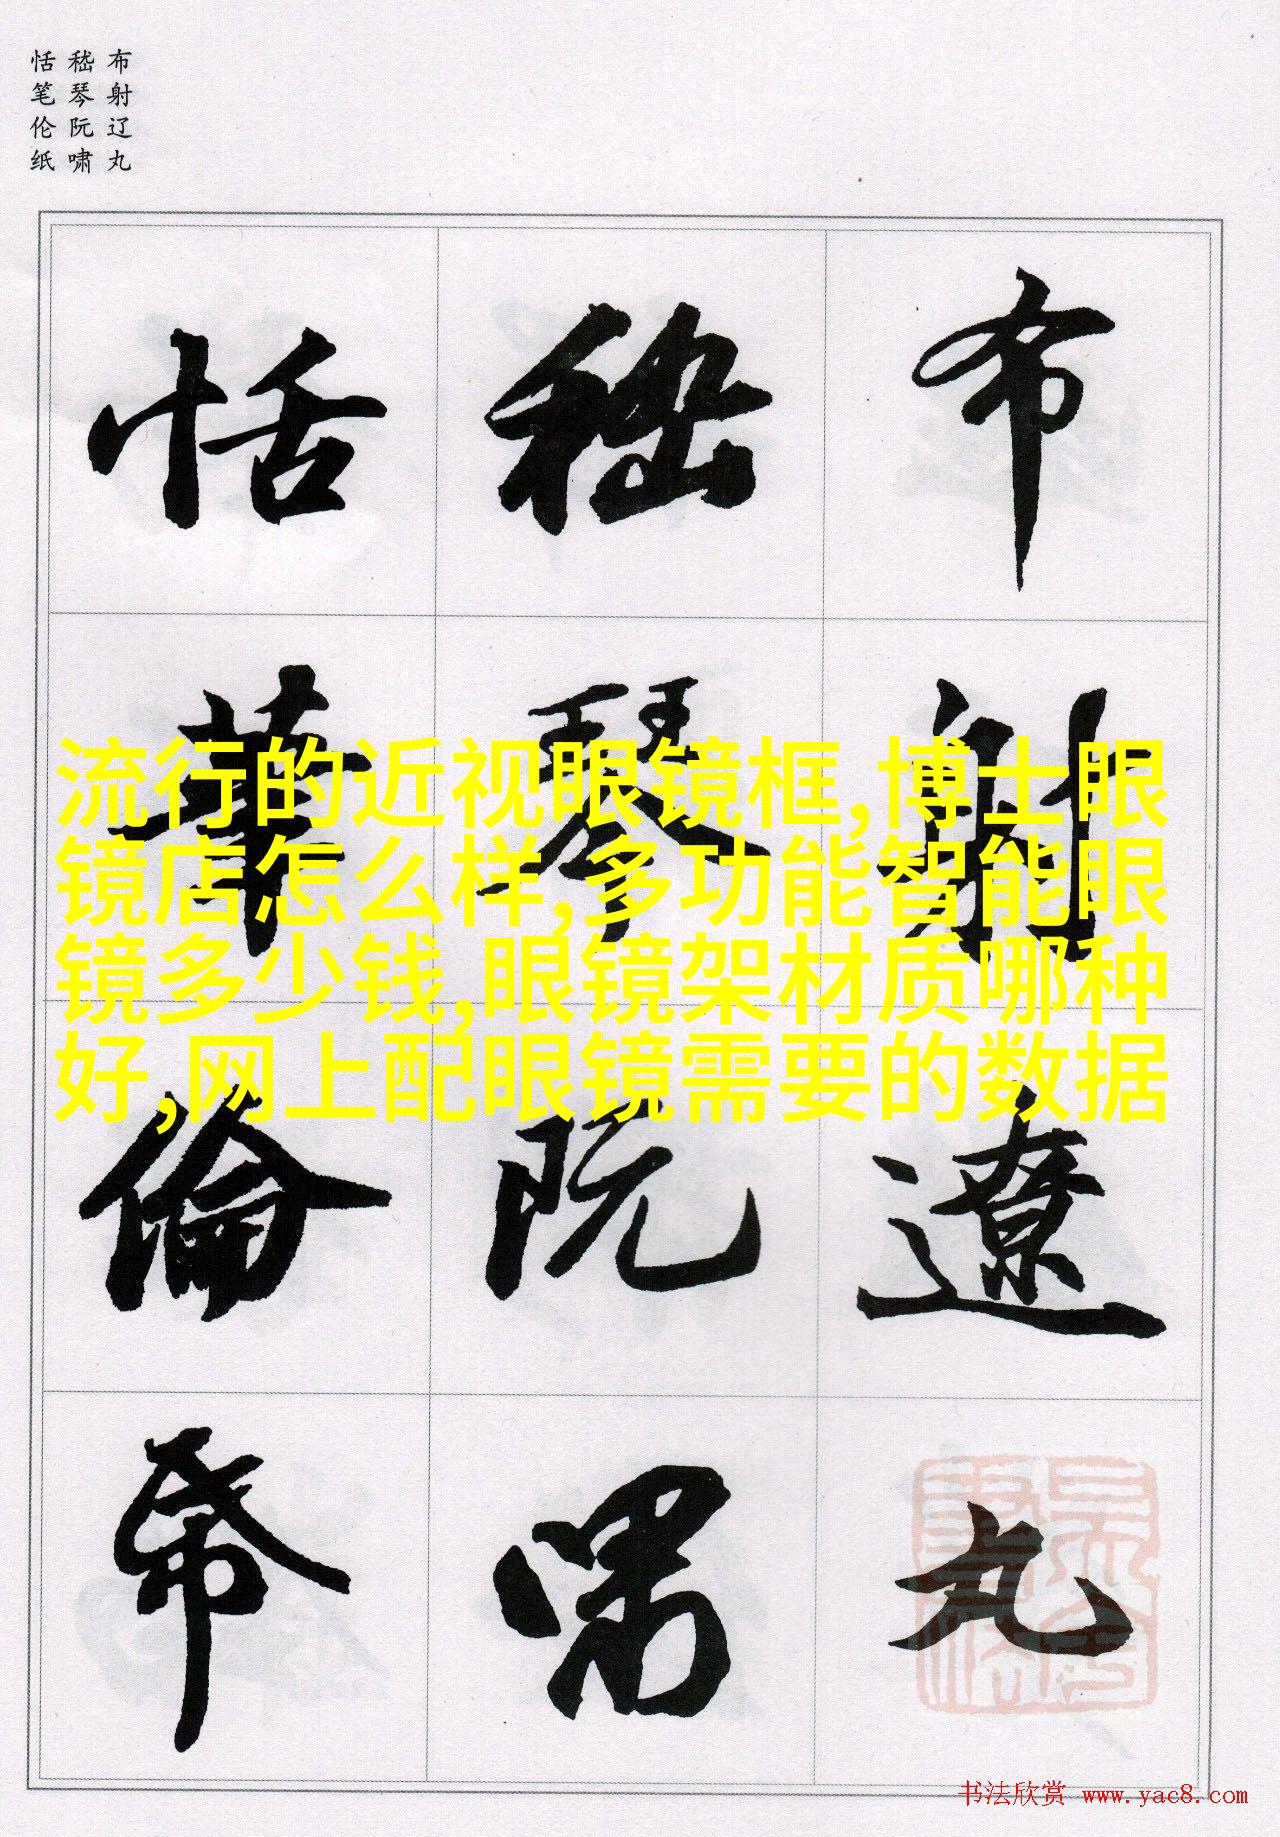 布射辽丸
嵇琴阮啸
恬笔伦纸
布射遼丸
嵇琴阮啸
恬筆倫帋
流行的近视眼镜框,博士眼
镜店怎么样,多功能智能眼
镜多少钱,眼镜架材质哪种
好,网上配眼镜需要的数据
书法欣赏 www.yac8.com